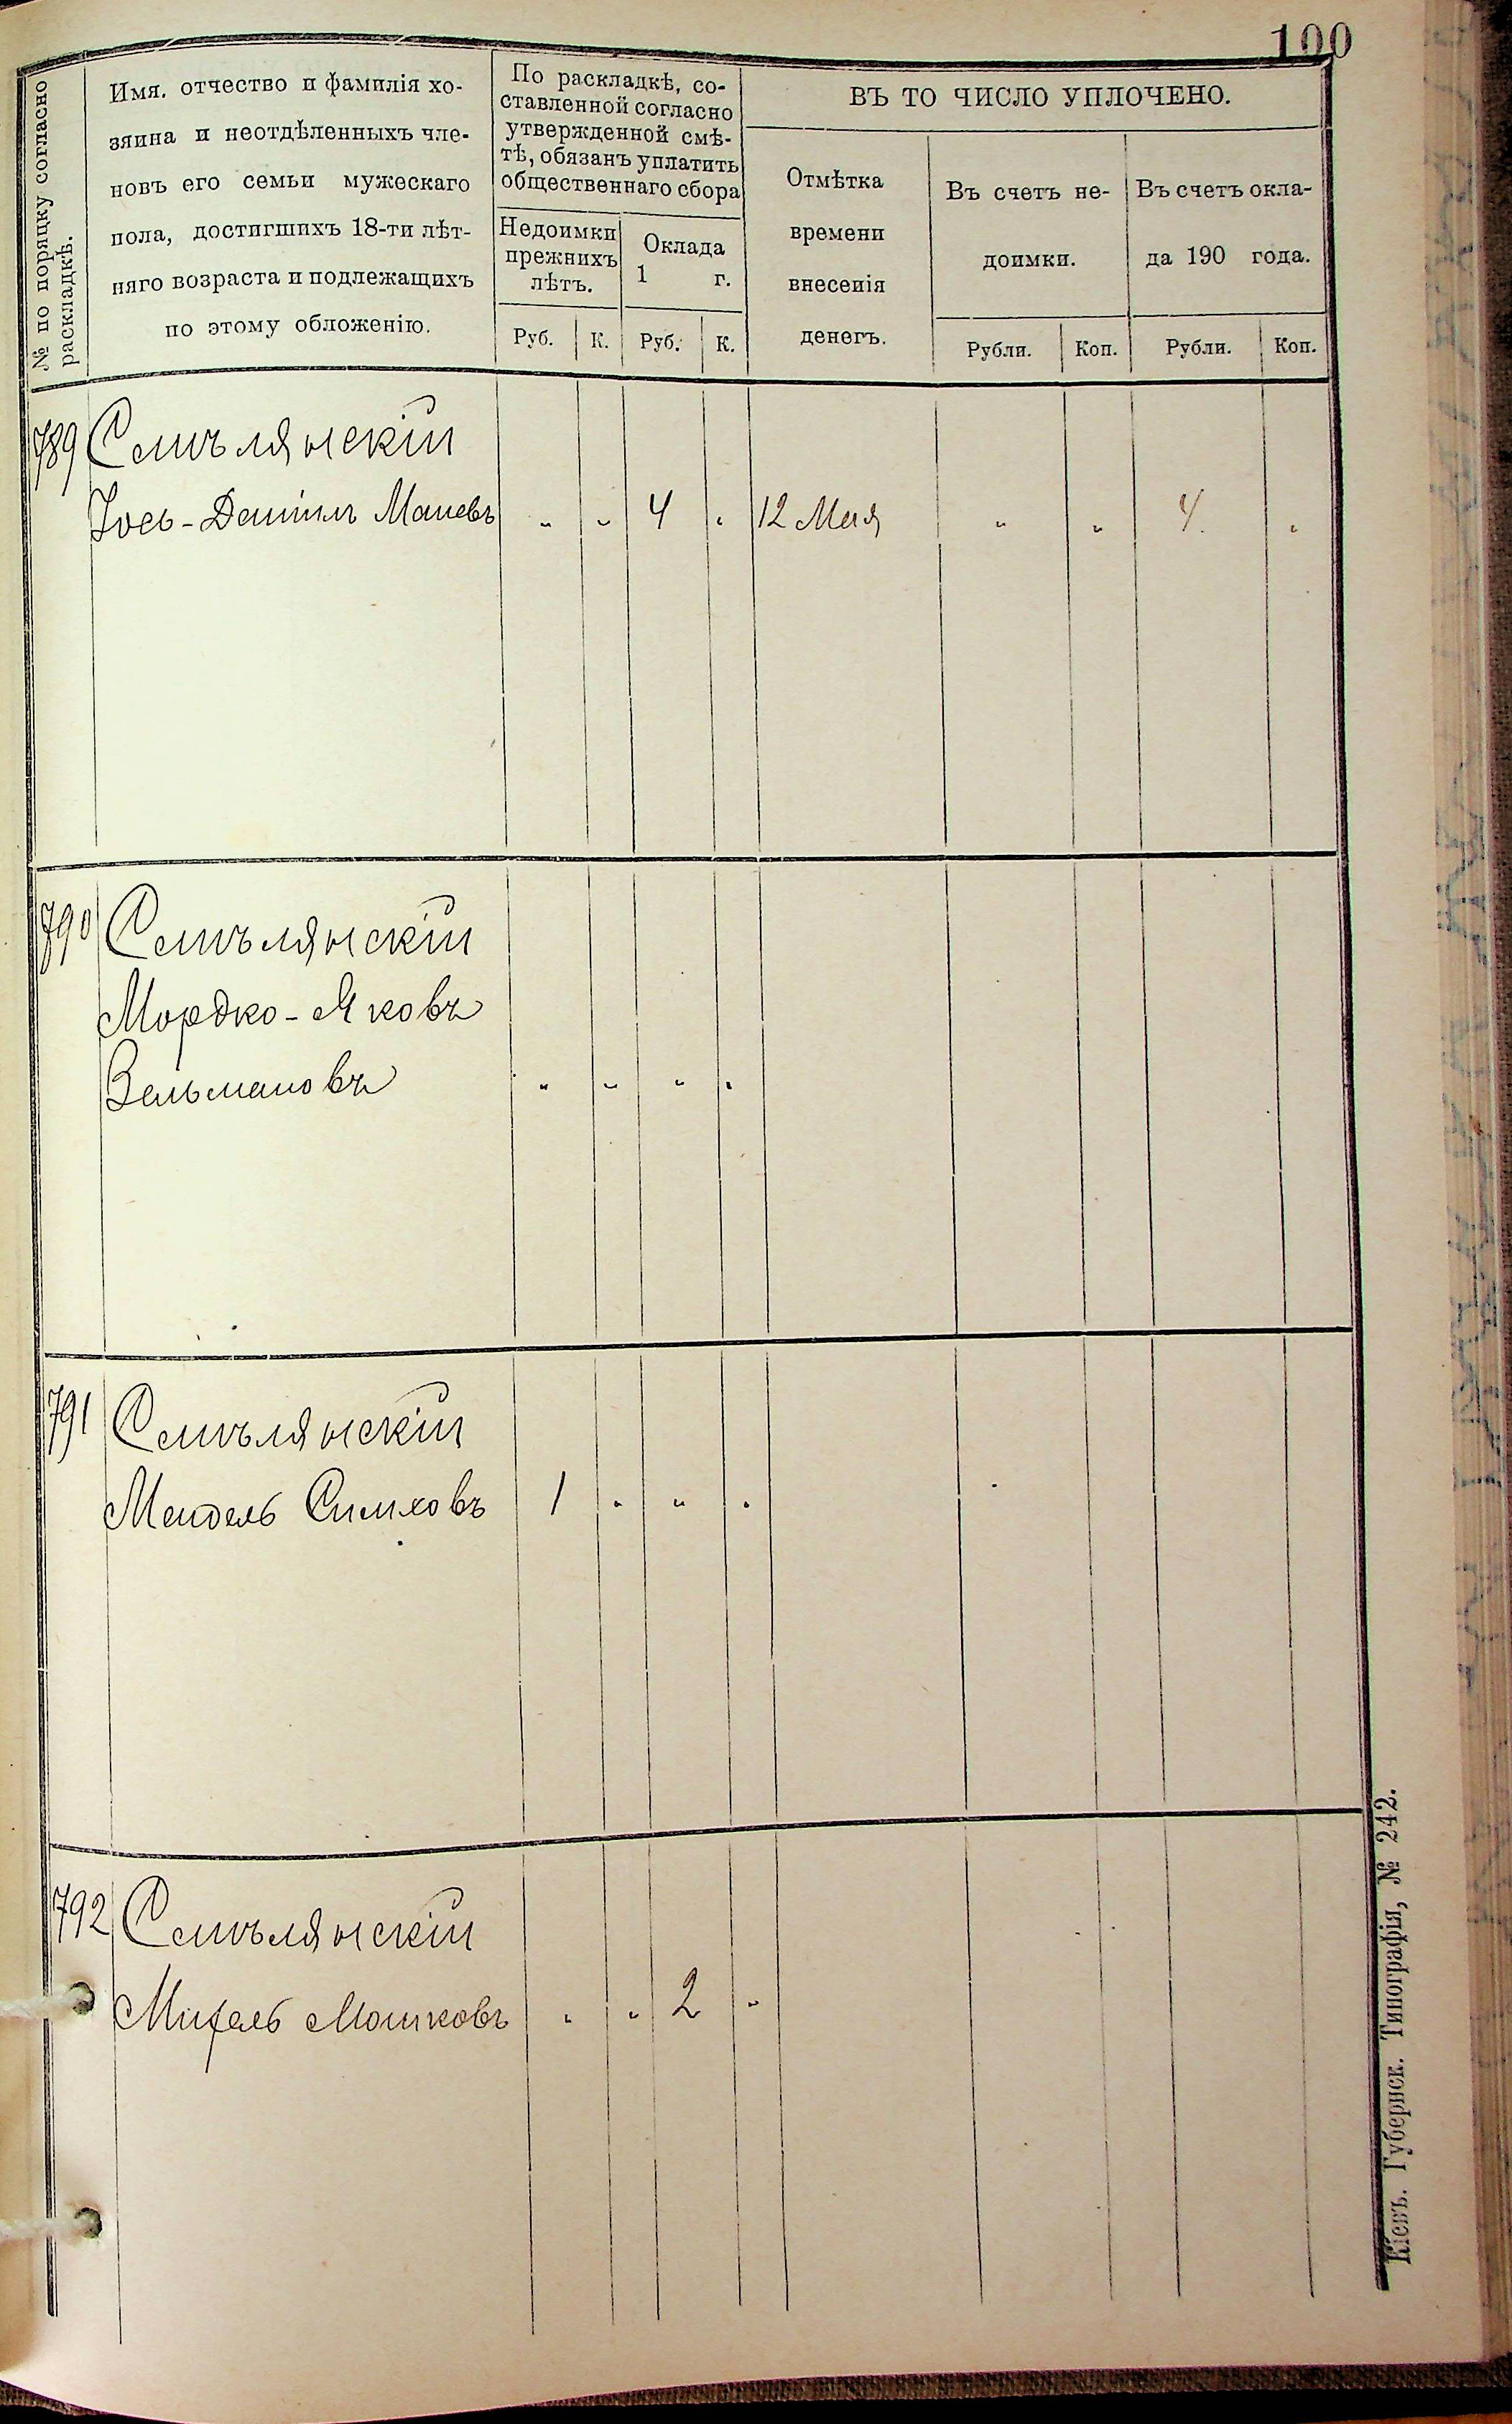 100
№ по порядку согласно
раскладкѣ.
Имя, отчество и фамилія хо-
зяина и неотдѣленныхъ чле-
новъ его семьи мужескаго
пола, достигшихъ 18-ти лѣт-
няго возраста и подлежащихъ
по этому обложенію.
По раскладкѣ, со-
ставленной согласно
утвержденной смѣ-
тѣ, обязанъ уплатить
общественнаго сбора
Недоимки
прежнихъ
лѣтъ.
Оклада
1 г.
Руб. К. Руб. К.
ВЪ ТО ЧИСЛО УПЛОЧЕНО.
Отмѣтка
времени
внесенія
денегъ.
Въ счетъ не-
доимки.
Въ счетъ окла-
да 190 года.
Рубли. Коп. Рубли. Коп.
789 Смѣлянскій
Іось- " " 4 " 12 Мая " " 4 "
790 Смѣлянскій
Мордко-Яковъ
Зельмановъ " " " "
791 Смѣлянскій
Мендель Симховъ 1 " " "
792 Смѣлянскій
Мошковъ " " 2 "
Кіевъ. Губернск. Типографія, № 242.